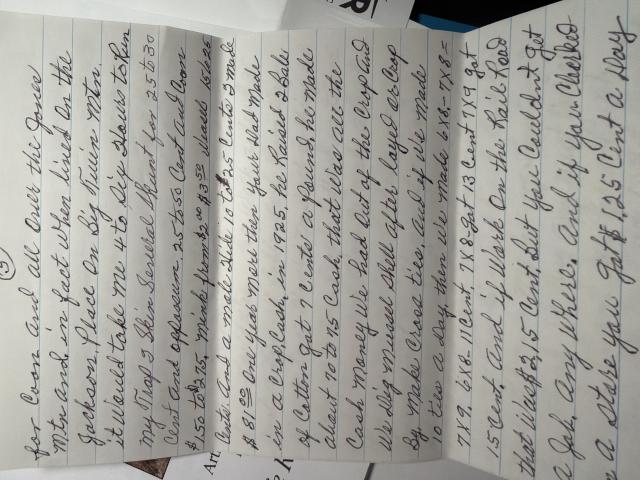 (3)
for Coon and all over the Jones
Mtn and in fact when lived on the
Jackson Place on Big Twin Mtn.
it would take me 4 to Six Hours to Run
my Trap 3 Skin Several Skunt for 25 to 30
Cent and oppossum 25 to 50 Cent and Coon
$1.50 to 2.75, mink from $2.00 $3.50 15 to 25
Cents And a mole Hide 10 to 25 Cents I made
$81.00 one year more then your Dad made
in a Crop, Cash, in 1925, he Raised 2 Bale
of Cotton got 7 Cents a Pound he made
about 70 to 75 Cash, that was all the
Cash money we had out of the Crop and
We Dig Mussel Shell after layed by Crop
By. made Cross ties, and if we made
10 ties a Day then we made 6x8 - 7x8 =
7x9, 6x8 - 11 Cent, 7x8 got 13 Cent 7x9 got
15 Cent. And if work on the Rail Road
that was $2.15 Cent, But you Couldn't get
a Job, any where. And if you Clerked
n a Store you got $1.25 Cent a Day
Art
R